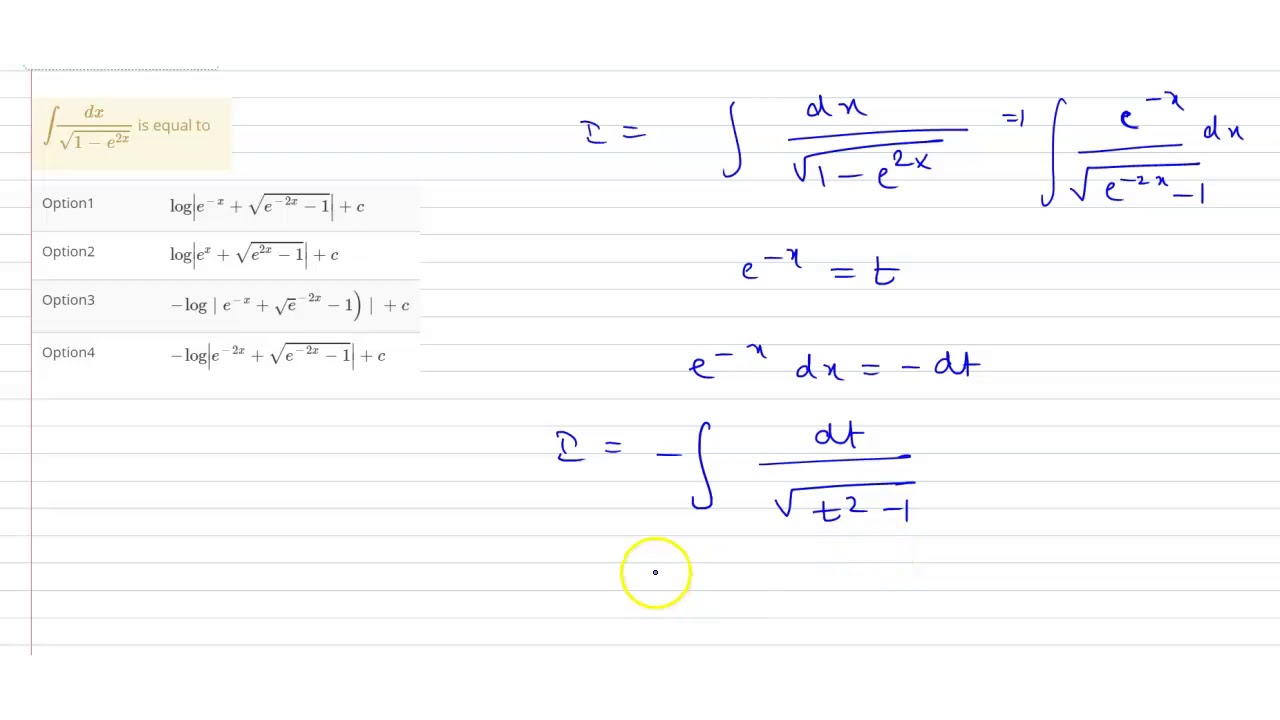 ∫ dx / √(1 − e^{2x}) is equal to
Option1 log|e^{−x} + √(e^{−2x} − 1)| + c
Option2 log|e^{x} + √(e^{2x} − 1)| + c
Option3 −log | e^{−x} + √e^{−2x} − 1) | + c
Option4 −log|e^{−2x} + √(e^{−2x} − 1)| + c
I = ∫ dx / √(1 − e^{2x}) =1 ∫ e^{−x} / √(e^{−2x} − 1) dx
e^{−x} = t
e^{−x} dx = − dt
I = − ∫ dt / √(t² − 1)